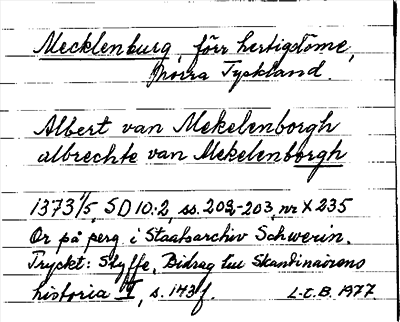 Mecklenburg, förr hertigdöme,
norra Tyskland.
Albert van Mekelenborgh
albrechte van Mekelenborgh
1373 1/5, SD 10:2, ss. 202-203, nr X 235
Or på perg i Staatsarchiv Schwerin.
Tryckt: Styffe, Bidrag till Skandinaviens
historia I, s. 143 f. L-E.B. 1977